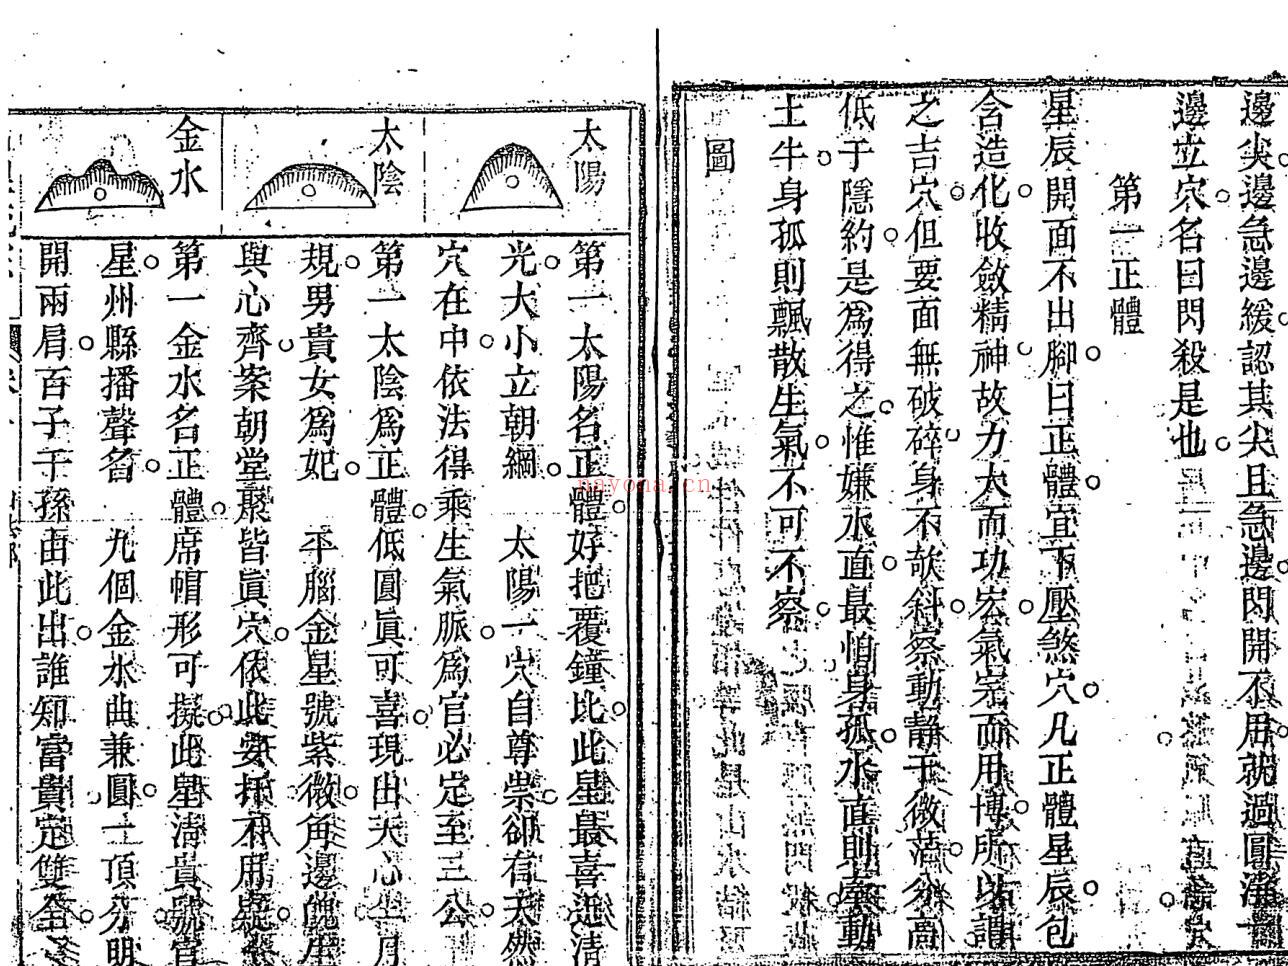 邊尖邊急邊緩認其尖且急邊閃開不用就過圓淨
邊立穴名曰閃殺是也
第一正體
星辰開面不出腳曰正體宜下壓煞穴凡正體星辰包
含造化收斂精神故力大而功宏氣完而用博所以謂
之吉穴但要面無破碎身不欹斜察動静于微茫分高
低于隱約是爲得之惟嫌水直最怕身孤水直則牽動
土牛身孤則飄散生氣不可不察
圖
太陽
第一太陽名正體好把覆鐘比此星最喜迎清
光大小立朝綱 太陽一穴自尊崇卻有天然
穴在中依法得乘生氣脈爲官必定至三公
太陰
第一太陰爲正體低圓眞可喜現出天心坐月
規男貴女爲妃 平腦金星號紫微角邊
與心齊案朝堂聚皆眞穴依此安扦不用疑
金水
第一金水名正體席帽形可擬此星清貴號官
星州縣播聲名 九個金水曲兼圓一頂分明
開兩肩百子千孫由此出誰知富貴定雙全
nayona.cn